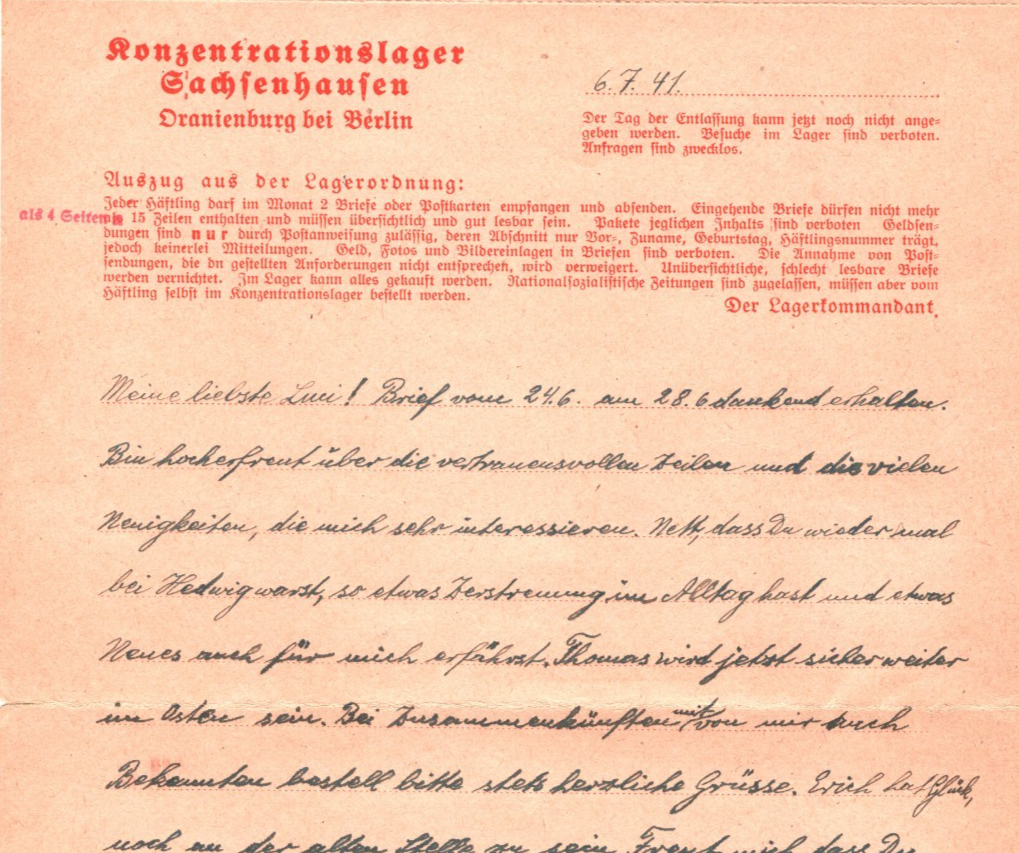 Konzentrationslager
Sachsenhausen
Oranienburg bei Berlin
6.7.41.
Der Tag der Entlassung kann jetzt noch nicht ange-
geben werden. Besuche im Lager sind verboten.
Anfragen sind zwecklos.
Auszug aus der Lagerordnung:
Jeder Häftling darf im Monat 2 Briefe oder Postkarten empfangen und absenden. Eingehende Briefe dürfen nicht mehr
als 4 Seiten à 15 Zeilen enthalten und müssen übersichtlich und gut lesbar sein. Pakete jeglichen Inhalts sind verboten Geldsen-
dungen sind nur durch Postanweisung zulässig, deren Abschnitt nur Vor-, Zuname, Geburtstag, Häftlingsnummer trägt,
jedoch keinerlei Mitteilungen. Geld, Fotos und Bildereinlagen in Briefen sind verboten. Die Annahme von Post-
sendungen, die dn gestellten Anforderungen nicht entsprechen, wird verweigert. Unübersichtliche, schlecht lesbare Briefe
werden vernichtet. Im Lager kann alles gekauft werden. Nationalsozialistische Zeitungen sind zugelassen, müssen aber vom
Häftling selbst im Konzentrationslager bestellt werden.
Der Lagerkommandant.
Meine liebste! Brief vom 24.6. am 28.6 dankend erhalten.
Bin hocherfreut über die vertrauensvollen Zeilen und die vielen
Neuigkeiten, die mich sehr interessieren. Nett, dass Du wieder mal
bei Hedwig warst, so etwas Zerstreuung im Alltag hast und etwas
Neues auch für mich erfährst. Thomas wird jetzt sicher weiter
im Osten sein. Bei Zusammenkünften mit von mir auch
Bekannten bestell bitte stets herzliche Grüsse. Erich hat Glück,
noch an der alten Stelle zu sein Freut mich dass Du